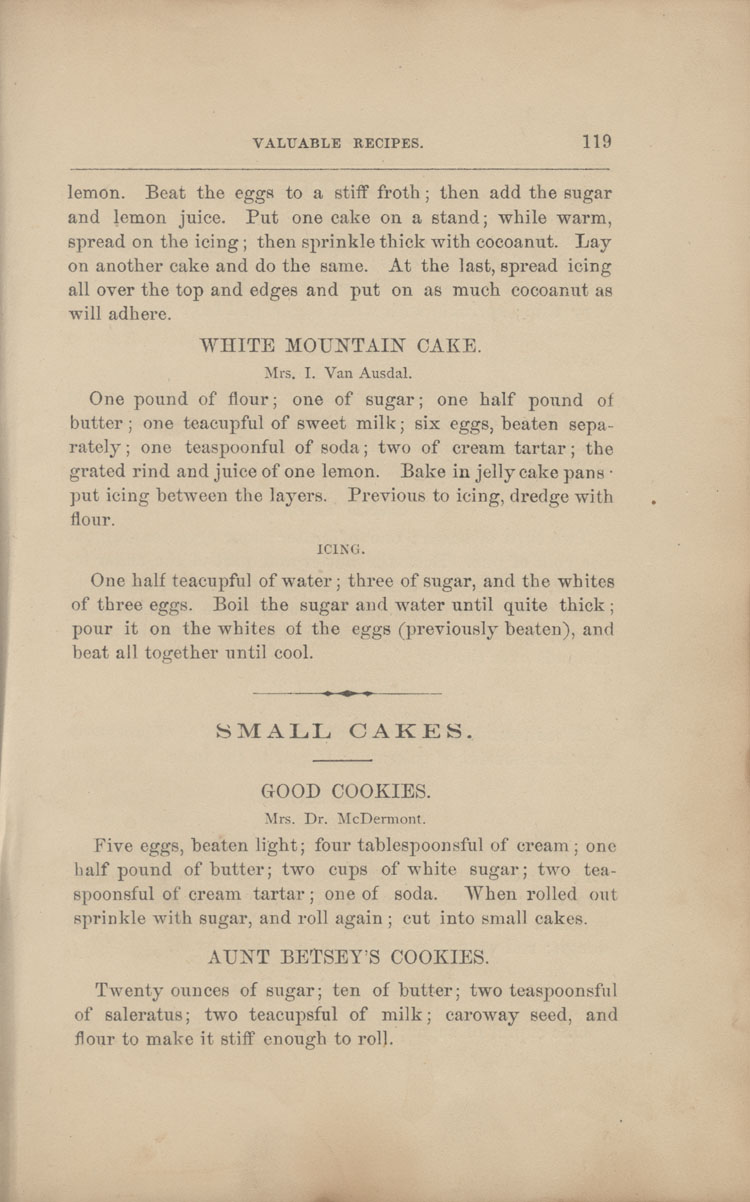 VALUABLE RECIPES. 119
lemon. Beat the eggs to a stiff froth; then add the sugar
and lemon juice. Put one cake on a stand; while warm,
spread on the icing; then sprinkle thick with cocoanut. Lay
on another cake and do the same. At the last, spread icing
all over the top and edges and put on as much cocoanut as
will adhere.
WHITE MOUNTAIN CAKE.
Mrs. I. Van Ausdal.
One pound of flour; one of sugar; one half pound of
butter; one teacupful of sweet milk; six eggs, beaten sepa-
rately; one teaspoonful of soda; two of cream tartar; the
grated rind and juice of one lemon. Bake in jelly cake pans ·
put icing between the layers. Previous to icing, dredge with
flour.
ICING.
One half teacupful of water; three of sugar, and the whites
of three eggs. Boil the sugar and water until quite thick;
pour it on the whites of the eggs (previously beaten), and
beat all together until cool.
SMALL CAKES.
GOOD COOKIES.
Mrs. Dr. McDermont.
Five eggs, beaten light; four tablespoonsful of cream; one
half pound of butter; two cups of white sugar; two tea-
spoonsful of cream tartar; one of soda. When rolled out
sprinkle with sugar, and roll again; cut into small cakes.
AUNT BETSEY'S COOKIES.
Twenty ounces of sugar; ten of butter; two teaspoonsful
of saleratus; two teacupsful of milk; caroway seed, and
flour to make it stiff enough to roll.